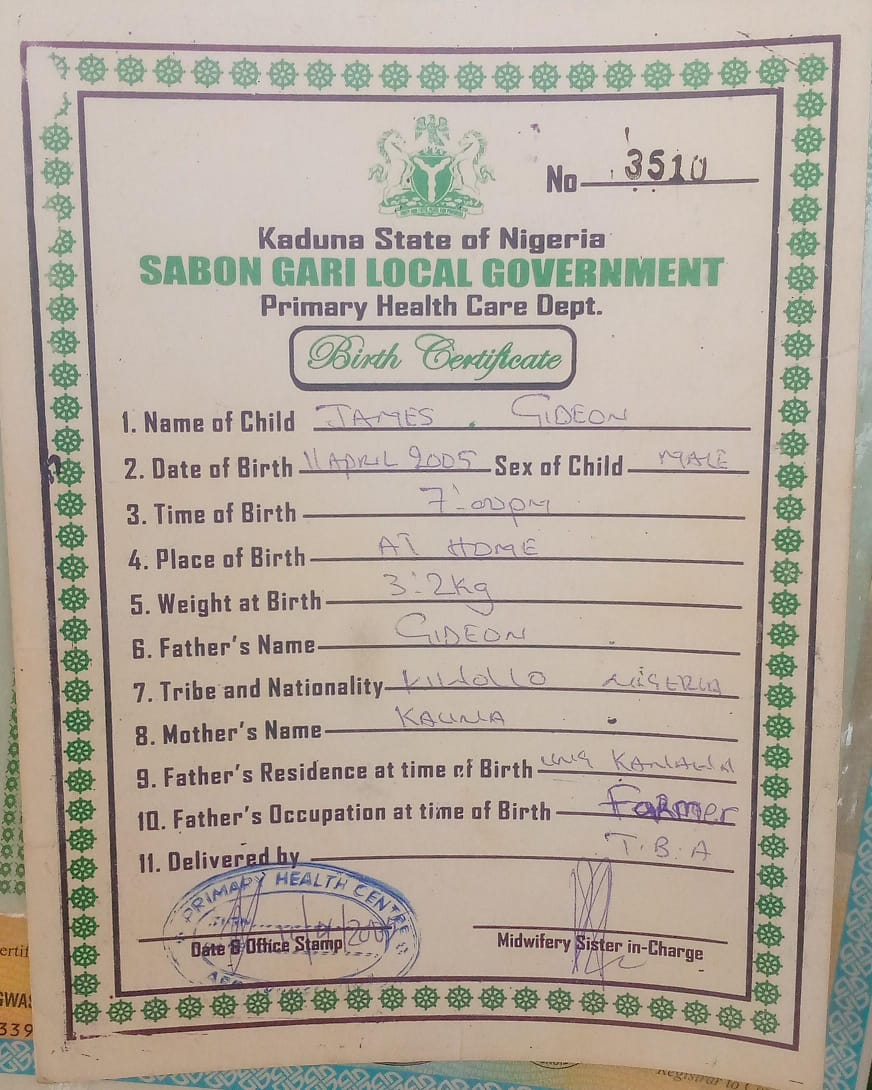 No 3510
Kaduna State of Nigeria
SABON GARI LOCAL GOVERNMENT
Primary Health Care Dept.
Birth Certificate
1. Name of Child JAMES . GIDEON
2. Date of Birth 11 APRIL 2005 Sex of Child MALE
3. Time of Birth 7:00pm
4. Place of Birth AT HOME
5. Weight at Birth 3.2kg
6. Father's Name GIDEON
7. Tribe and Nationality NIGERIA
8. Mother's Name KAUNA
9. Father's Residence at time of Birth UNG KANAWA
10. Father's Occupation at time of Birth Farmer
11. Delivered by T.B.A
PRIMARY HEALTH CENTRE
Date & Office Stamp
Midwifery Sister in-Charge
339
Registrar to